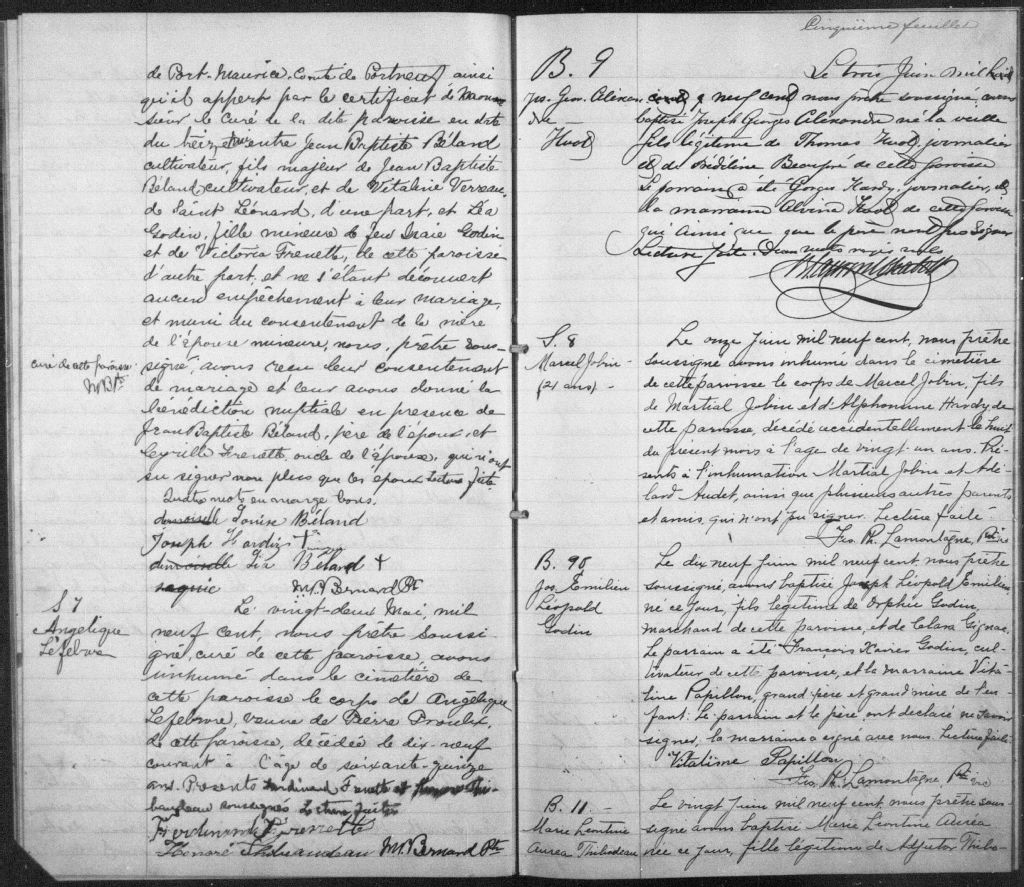 de Port-Maurice, Comté de Portneuf ainsi
qu'il appert par le certificat de Mon
sieur le Curé de la dite paroisse en date
du treize entre Jean Baptiste Béland
cultivateur, fils majeur de Jean Baptiste
Béland, cultivateur, et de Vitaline Verreau,
de Saint Léonard, d'une part, et Léa
Godin, fille mineure de feu Isaie Godin
et de Victoria Frenette, de cette paroisse
d'autre part, et ne s'étant découvert
aucun empêchement à leur mariage,
et muni du consentement de la mère
de l'épouse mineure, nous, prêtre sous-
curé de cette paroisse
M Bte
signé, avons reçu leur consentement
de mariage et leur avons donné la
bénédiction nuptiale en présence de
Jean Baptiste Béland, père de l'époux, et
Cyrille Frenette, oncle de l'épouse, qui n'ont
su signer non plus que les époux Lecture faite
Quatre mots en marge bons.
demoiselle Louise Béland
Joseph Hardy
demoiselle Lia Béland +
requis M. Bernard Ptre
S 7
Angélique
Lefebvre
Le vingt-deux Mai, mil
neuf cent, nous prêtre soussi
gné, curé de cette paroisse avons
inhumé dans le cimetière de
cette paroisse le corps de Angélique
Lefebvre, veuve de Pierre Proulx,
de cette paroisse, décédée le dix-neuf
courant à l'âge de soixante-quinze
ans. Présents Ferdinand Frenette et Thi
baudeau soussignés Lecture faite
Ferdinand Frenette
Honoré Thibaudeau M. Bernard Ptre
Cinquième feuillet
B. 9
Jos. Geo. Alexan
dre
Huot
Le trois Juin mil
neuf cent nous prêtre soussigné, avons
baptisé Joseph Georges Alexandre né la veille
fils légitime de Thomas Huot, journalier
et de Beaupré de cette paroisse
Le parrain a été Georges Hardy, journalier, et
la marraine Alvina Huot de cette paroisse
qui ainsi que que le père n'ont pu signer
Lecture faite.
S. 8
Marcel Jobin
(21 ans) -
Le onze Juin mil neuf cent, nous prêtre
soussigné avons inhumé dans le cimetière
de cette paroisse le corps de Marcel Jobin, fils
de Martial Jobin et d'Alphonsine Hardy, de
cette paroisse, décédé accidentellement le huit
du présent mois à l'age de vingt un ans. Pré-
sents à l'inhumation Martial Jobin et Adé-
lard Audet, ainsi que plusieurs autres parents
et amis, qui n'ont pu signer. Lecture faite.
Jos. Ph. Lamontagne, Ptre
B. 90
Jos. Emilien
Léopold
Godin
Le dix neuf Juin mil neuf cent nous prêtre
soussigné, avons baptisé Joseph Léopold Emilien
né ce jour, fils légitime de Orphir Godin,
marchand de cette paroisse, et de Clara Gignac.
Le parrain a été François Xavier Godin, cul-
tivateur de cette paroisse, et la marraine Vita-
line Papillon, grand père et grand mère de l'en-
fant. Le parrain et le père, ont déclaré ne savoir
signer, la marraine a signé avec nous. Lecture faite
Vitalisme Papillon
Jos. Ph. Lamontagne Ptre
B. 11. -
Marie Léontine
Aurea Thibodeau
Le vingt Juin mil neuf cent nous prêtre sous-
signé avons baptisé Marie Léontine Aurea
née ce jour, fille légitime de Adjutor Thibo-